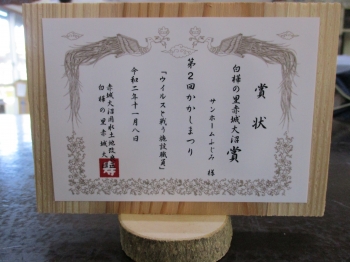 賞状
白樺の里赤城大沼賞
サンホームふじみ 様
第2回かかしまつり
「ウイルスと戦う施設職員」
令和二年十一月八日
赤城大沼用水土地改
白樺の里赤城大